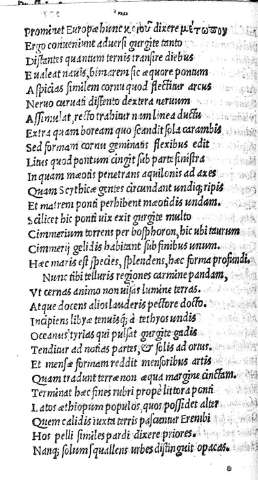 Prominet Europæ hunc κριοῦ dixere μέτωπου
Ergo conueniunt aduersi gurgite tanto
Distantes quantum ternis transire diebus
Eualeat nauis, bimarem sic æquore pontum
Aspicias similem cornu quod flectitur arcus
Neruo curuati distento dextera neruum
Assimulat, recto trahitur nam linea ductu
Extra quam boream quo scandit sola carambis
Sed formam cornu geminatis flexibus edit
Litus quod pontum cingit sub parte sinistra
In quam mæotis penetrans aquilonis ad axes
Quam Scythicæ gentes circundant undiq; ripis
Et matrem ponti perhibent mæotidis undam.
Scilicet hic ponti uix exit gurgite multo
Cimmerium torrens per bosphoron, hic ubi taurum
Cimmerij gelidis habitant sub finibus unum.
Hæc maris est species, splendens, hæc forma profundi.
Nunc tibi telluris regiones carmine pandam,
Vt cernas animo non uisas lumine terras.
Atque docens alios lauderis pectore docto.
Incipiens libyæ tenuisq; à tethyos undis
Oceanus tyrias qui pulsat gurgite gadis
Tenditur ad notias partes, & solis ad ortus.
Et mensæ formam reddit mensoribus artis
Quam tradunt terræ non æqua margine cinctam.
Terminat hæc fines rubri propè littora ponti
Latos æthiopum populos, quos possidet alter
Quem calidis iuxta terris pascuntur Erembi
Hos pelli similes pardi dixere priores.
Nanq; solum squallens urbes distinguit opacas.